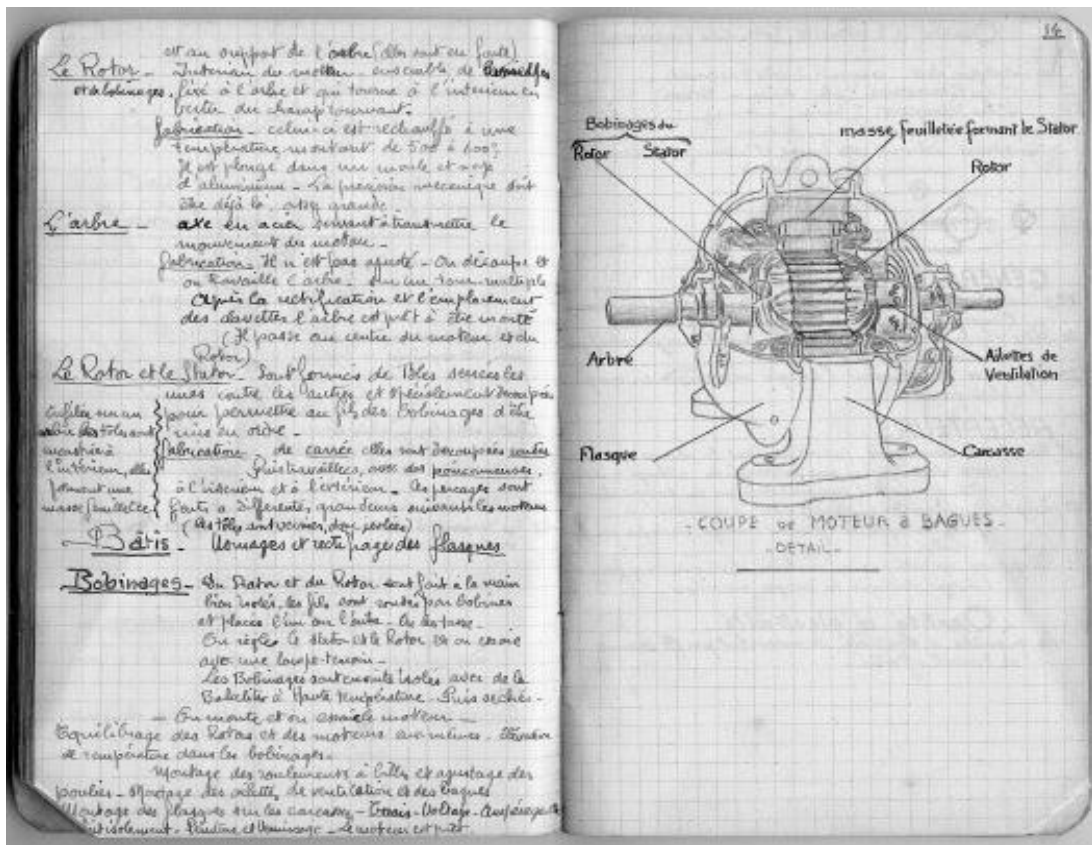 et au support de l'arbre (elles sont en fonte)
Le Rotor - Intérieur du moteur - ensemble de
et de bobinages, fixé à l'arbre et qui tourne à l'intérieur en
vertu du champ tournant.
fabrication - celui-ci est réchauffé à une
température montant de 500 à 600°
Il est plongé dans un moule et
d'aluminium - La pression mécanique doit
être déjà là, assez grande
L'arbre - axe en acier servant à transmettre le
mouvement du moteur -
fabrication - Il n'est pas ajusté - On découpe et
on travaille l'arbre - sur un tour multiple
Après la rectification et l'emplacement
des clavettes l'arbre est prêt à être monté
(Il passe au centre du moteur et du
Rotor)
Le Rotor et le Stator - Sont formés de Tôles serrées les
unes contre les autres et spécialement découpées
pour permettre au fil des bobinages d'être
mis en ordre -
fabrication de carrée elles sont découpées rondes
Puis travaillées, avec des poinçonneuses,
à l'intérieur et à l'extérieur - Ces perçages sont
faits à différentes grandeurs suivant les moteurs
(les tôles sont vernies, donc isolées)
des tôles sont
l'intérieur, elles
forment une
masse feuilletée
Bâtis - Usinages et rectifiage des flasques
Bobinages - Du Stator et du Rotor sont fait à la main
bien isolés, les fils sont soudés par bobines
et placés l'un sur l'autre - On les tasse -
On règle le stator et le Rotor et on essaie
avec une lampe-témoin -
Les Bobinages sont ensuite isolés avec de la
Bakélite à Haute température - Puis séchés -
- On monte et on essaie le moteur -
Equilibrage des Rotors et des moteurs eux-mêmes -
de température dans les bobinages -
Montage des roulements à billes et ajustage des
poulies - Montage des ailettes de ventilation et des bagues
Montage des flasques sur les carcasses - Essais - Voltage - Ampérage
isolement - Peinture et Vernissage - Le moteur est prêt
14
Bobinages du
Rotor Stator
masse feuilletée formant le Stator
Rotor
Arbre
Ailettes de
Ventilation
Flasque
Carcasse
- COUPE de MOTEUR à BAGUES -
- DETAIL -